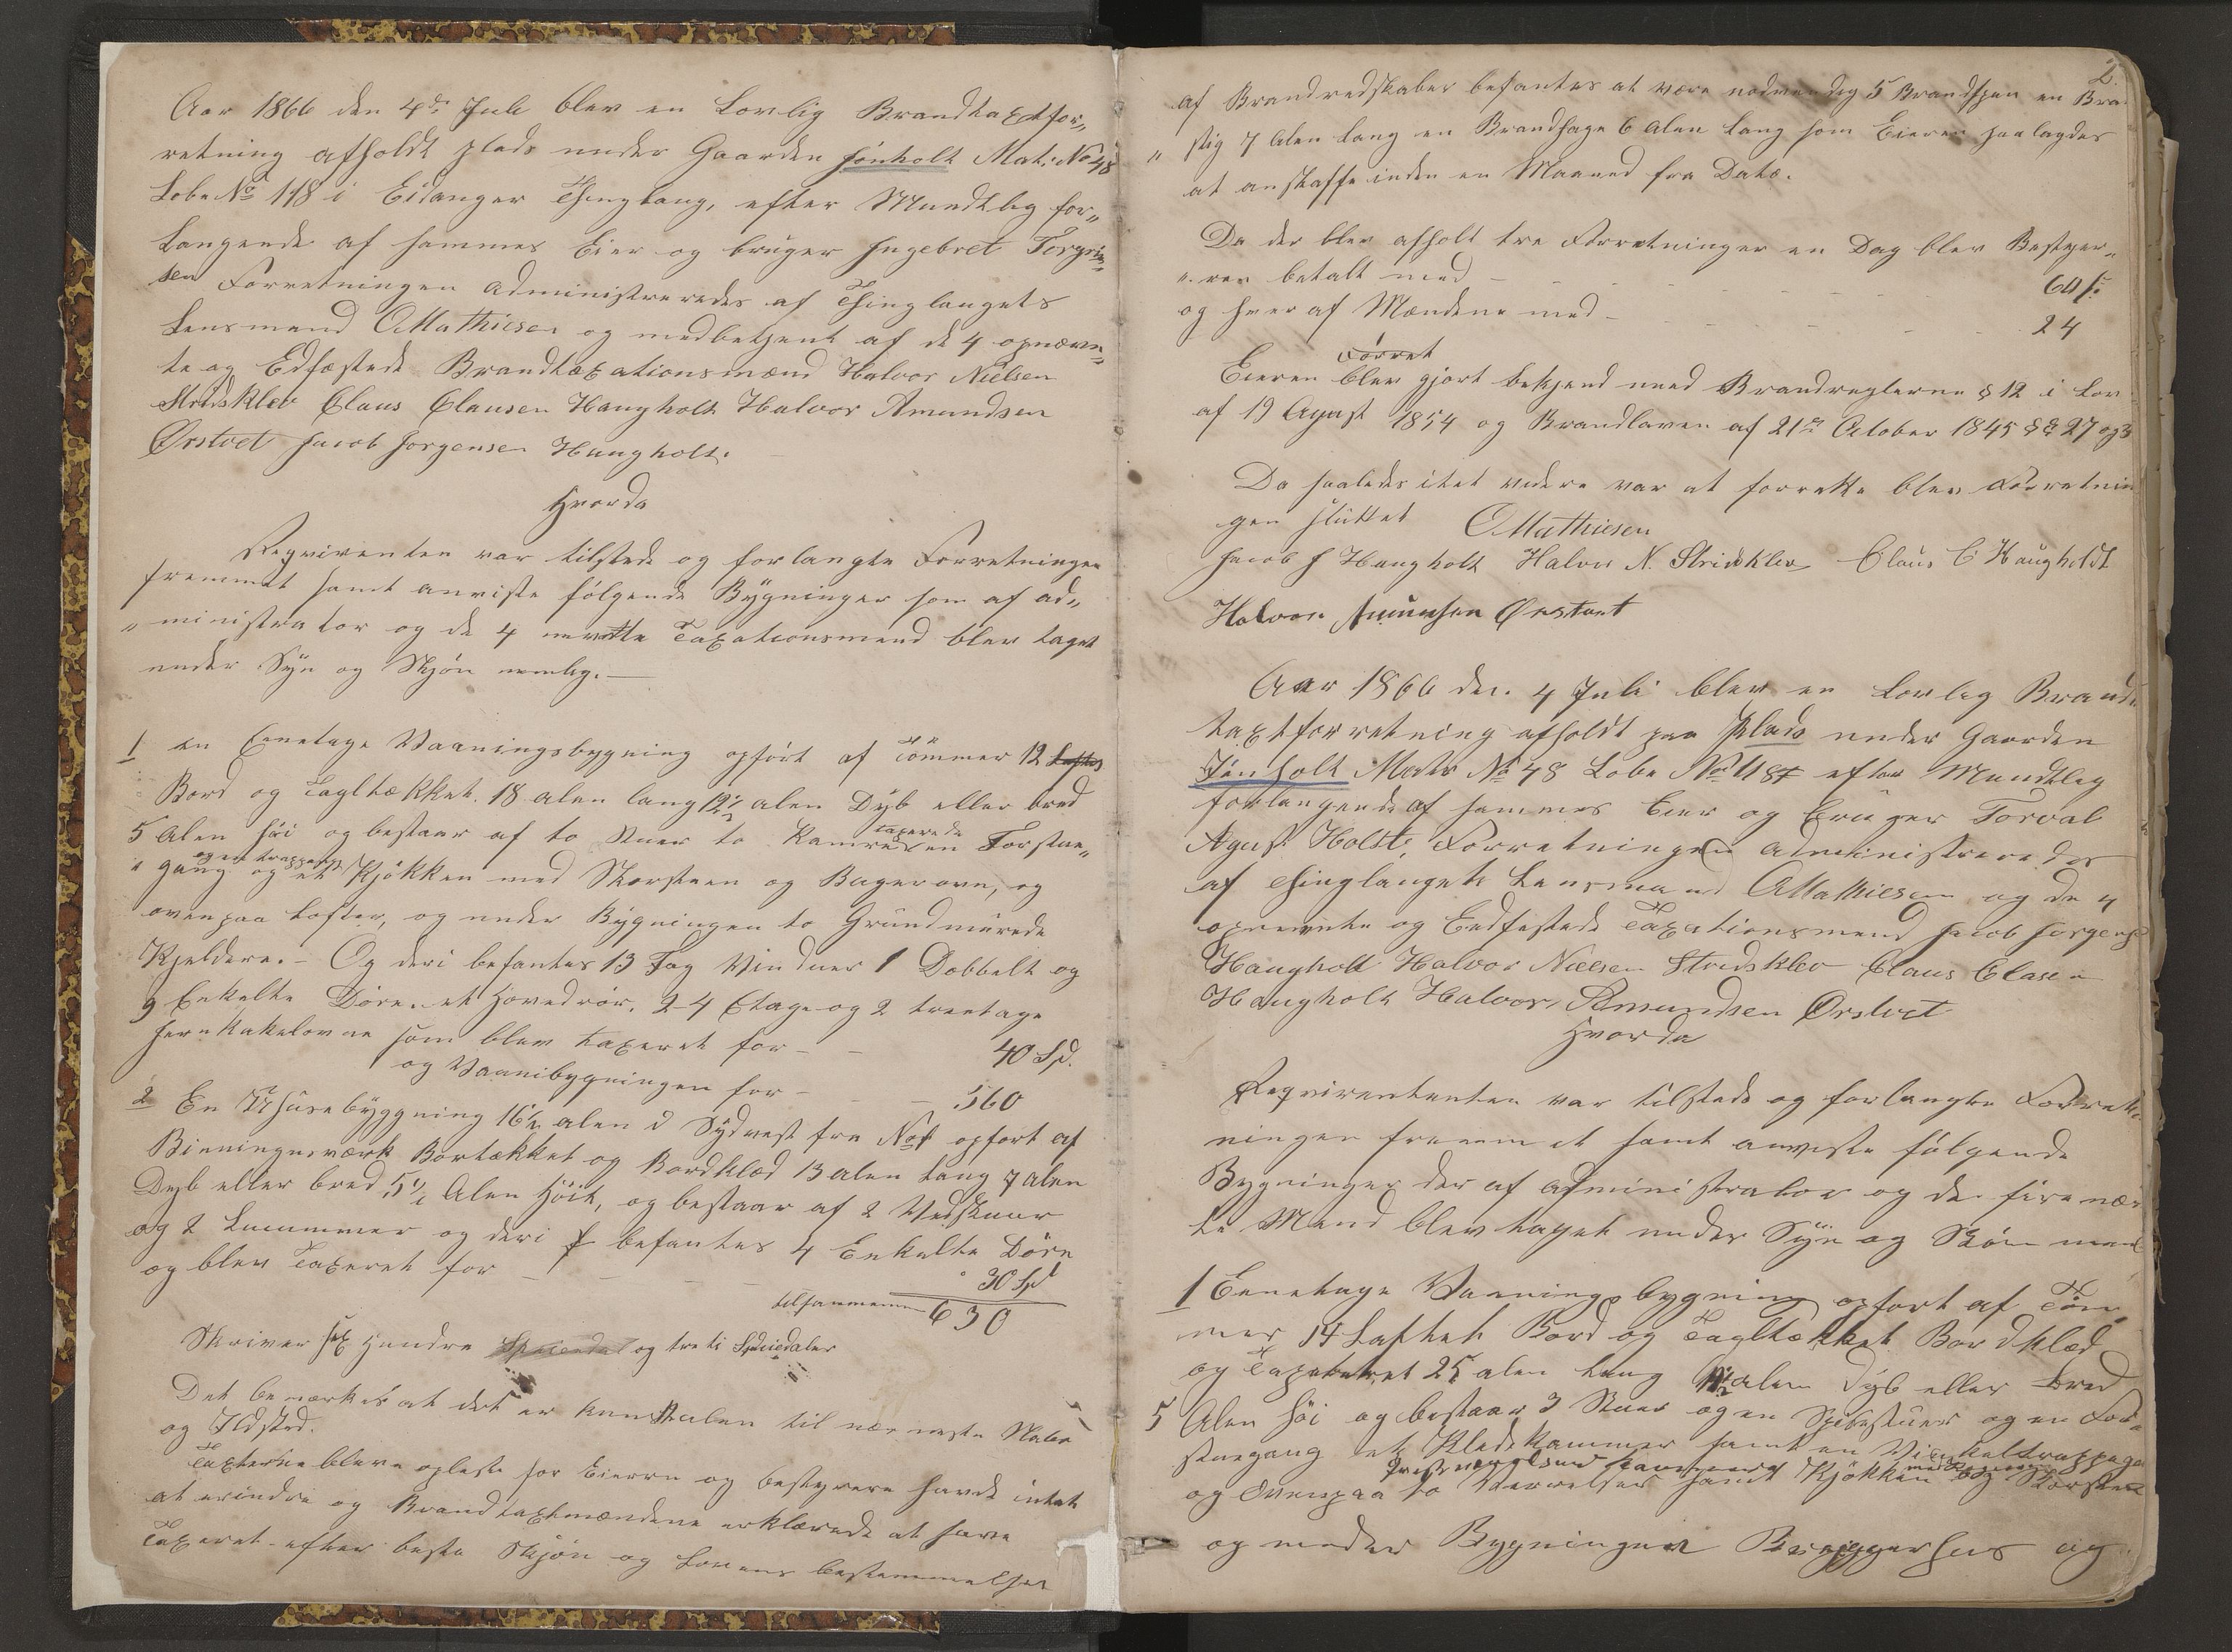 Aar 1866 den 4de Juli blev en Lovlig Brandtaxtfor„
retning afholdt plads under Gaarden Jönholt Mat: No 48
Lobe No 118 i Eidanger Thinglaug, efter Mundtlig for„
langende af sammes Eier og bruger Ingebret Torgrim„
sen Forretningen administreredes af Thinglaugets
Lensmand OMathiesen og medbetjent af de 4 opnævn„
te og Edfæstede Brandtaxationsmænd Halvor Nielsen
Stridsklev Claus Clausen Haugholt Halvor Amundsen
Örstvet Jacob Jorgensen Haugholt.
Hvorda
Reqvirenten var tilstede og forlangte Forretningen
fremmet samt anviste fölgende Bygninger som af ad„
„ministrator og de 4 nevnte Taxationsmend blev taget
under Syn og Skjön nemlig.—
1 en Eenetage Vaaningsbygning opfört af Tömmer 12 Laftes
Bord og Tagltækket. 18 alen lang 12½ alen Dyb eller bred
5 Alen höi og bestaar af to Stuer to Kamre en Forstue„
taxerede
„gang og et Kjökken med Skorsteen og Bagerovn, og
og en trappegang
ovenpaa Lofter, og under Bygningen to Grundmurede
Kjeldere.— Og deri befantes 13 Fag Vinduer 1 Dobbelt og
9 Enkelte Döre. et Hovedrör, 2-4 Etage og 2 treetage
Jernkakelovne som blev taxeret for — — 40 Spd.
og Vaanibygningen for — — — 560
2 En Uhusebyggning 16½ alen i Sydvest fra No 1 opfort af
Binningsværk Bortækket og Bordklæd 13 alen lang 7 alen
Dyb eller bred 5½ Alen Höit, og bestaar af 2 Vedskuur
og 2 Luummer og deri befantes 4 Enkelte Döre
og blev Taxeret for — — — — 30 Spd
tilsammen 630
Skriver sex Hundre Speciedal og treti Spduedaler
Det bemærkes at det er kun alen til nærmeste Nabo
og Ildsted.
Taxterne bleve opleste for Eieren og bestyrere havde intet
at erindre og Brandtaxtmændene erklærede at have
Taxeret efter beste Skjön og Lovens bestemmelser
2.
af Brandredskaber befantes at være nodvendig 5 Brandspan en Bra
„ stig 7 Alen lang en Brandhage 6 Alen lang som Eieren paalagdes
at anskaffe inden en Maaned fra Dato.
Da der blev afholt tre Forretninger en Dag blev Bestyer„
„ren betalt med — — — — — 60 s:
og hver af Mændene med — — — — 24
Forret
Eieren blev gjort bekjend med Brandreglerne § 12 i Lov
af 19 Agust 1854 og Brandlaven af 21de October 1845 §§ 27 og 3
Da saaledes itet videre var at forrette blev Forretnin
gen sluttet OMathiesen
Jacob J Haugholt Halvor N. Stridsklev Claus C Haugholdt
Halvor Amunsen Örstvet
Aar 1866 den 4 Juli blev en Lovlig Brand„
taxtforretning afholdt paa Plads under Gaarden
Jönholt Matr No 48 Lobe No 118f efter Mundtlig
forlangende af sammes Eier og Bruger Torval
Agust Holste, Forretningen administreredes
af Thinglaugets Lensmand OMathiesen og de 4
opnevnte og Eedfestede Taxationsmend Jacob Jorgens
Haugholt Halvor Nielsen Stridsklev Claus Clasen
Haugholt Halvor Amundsen Örstvet
Hvorda
Reqvirententen var tilstede og forlangte Forret
ningen fremmet samt anviste fölgende
Bygninger der af administrator og de fire næv
te Mend blev taget under Syn og Skön neml
1 Eenetage Vaaningsbygning opfort af Töm„
mer 14 Laftet Bord og Tagltækket Bordklæd
og Tapeteret 25 alen lang 11½ alen Dyb eller bred
5 Alen höi og bestaar 3 Stuer og en Spisestuer og en For„
stuegang et Kledekammer samt en Vinkeltrappegan
og Ovenpaa to Værelser samt Kjökken og Skorsten
og under Bygningen Bryggerhus og